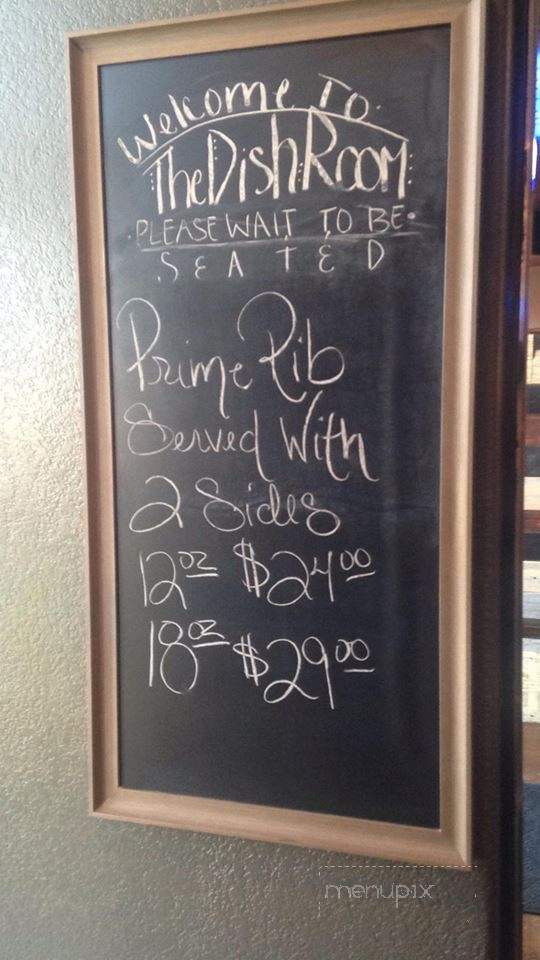 Welcome To
The Dish Room
PLEASE WAIT TO BE
SEATED
Prime Rib
Served With
2 Sides
12oz $24.00
18oz $29.00
menupix